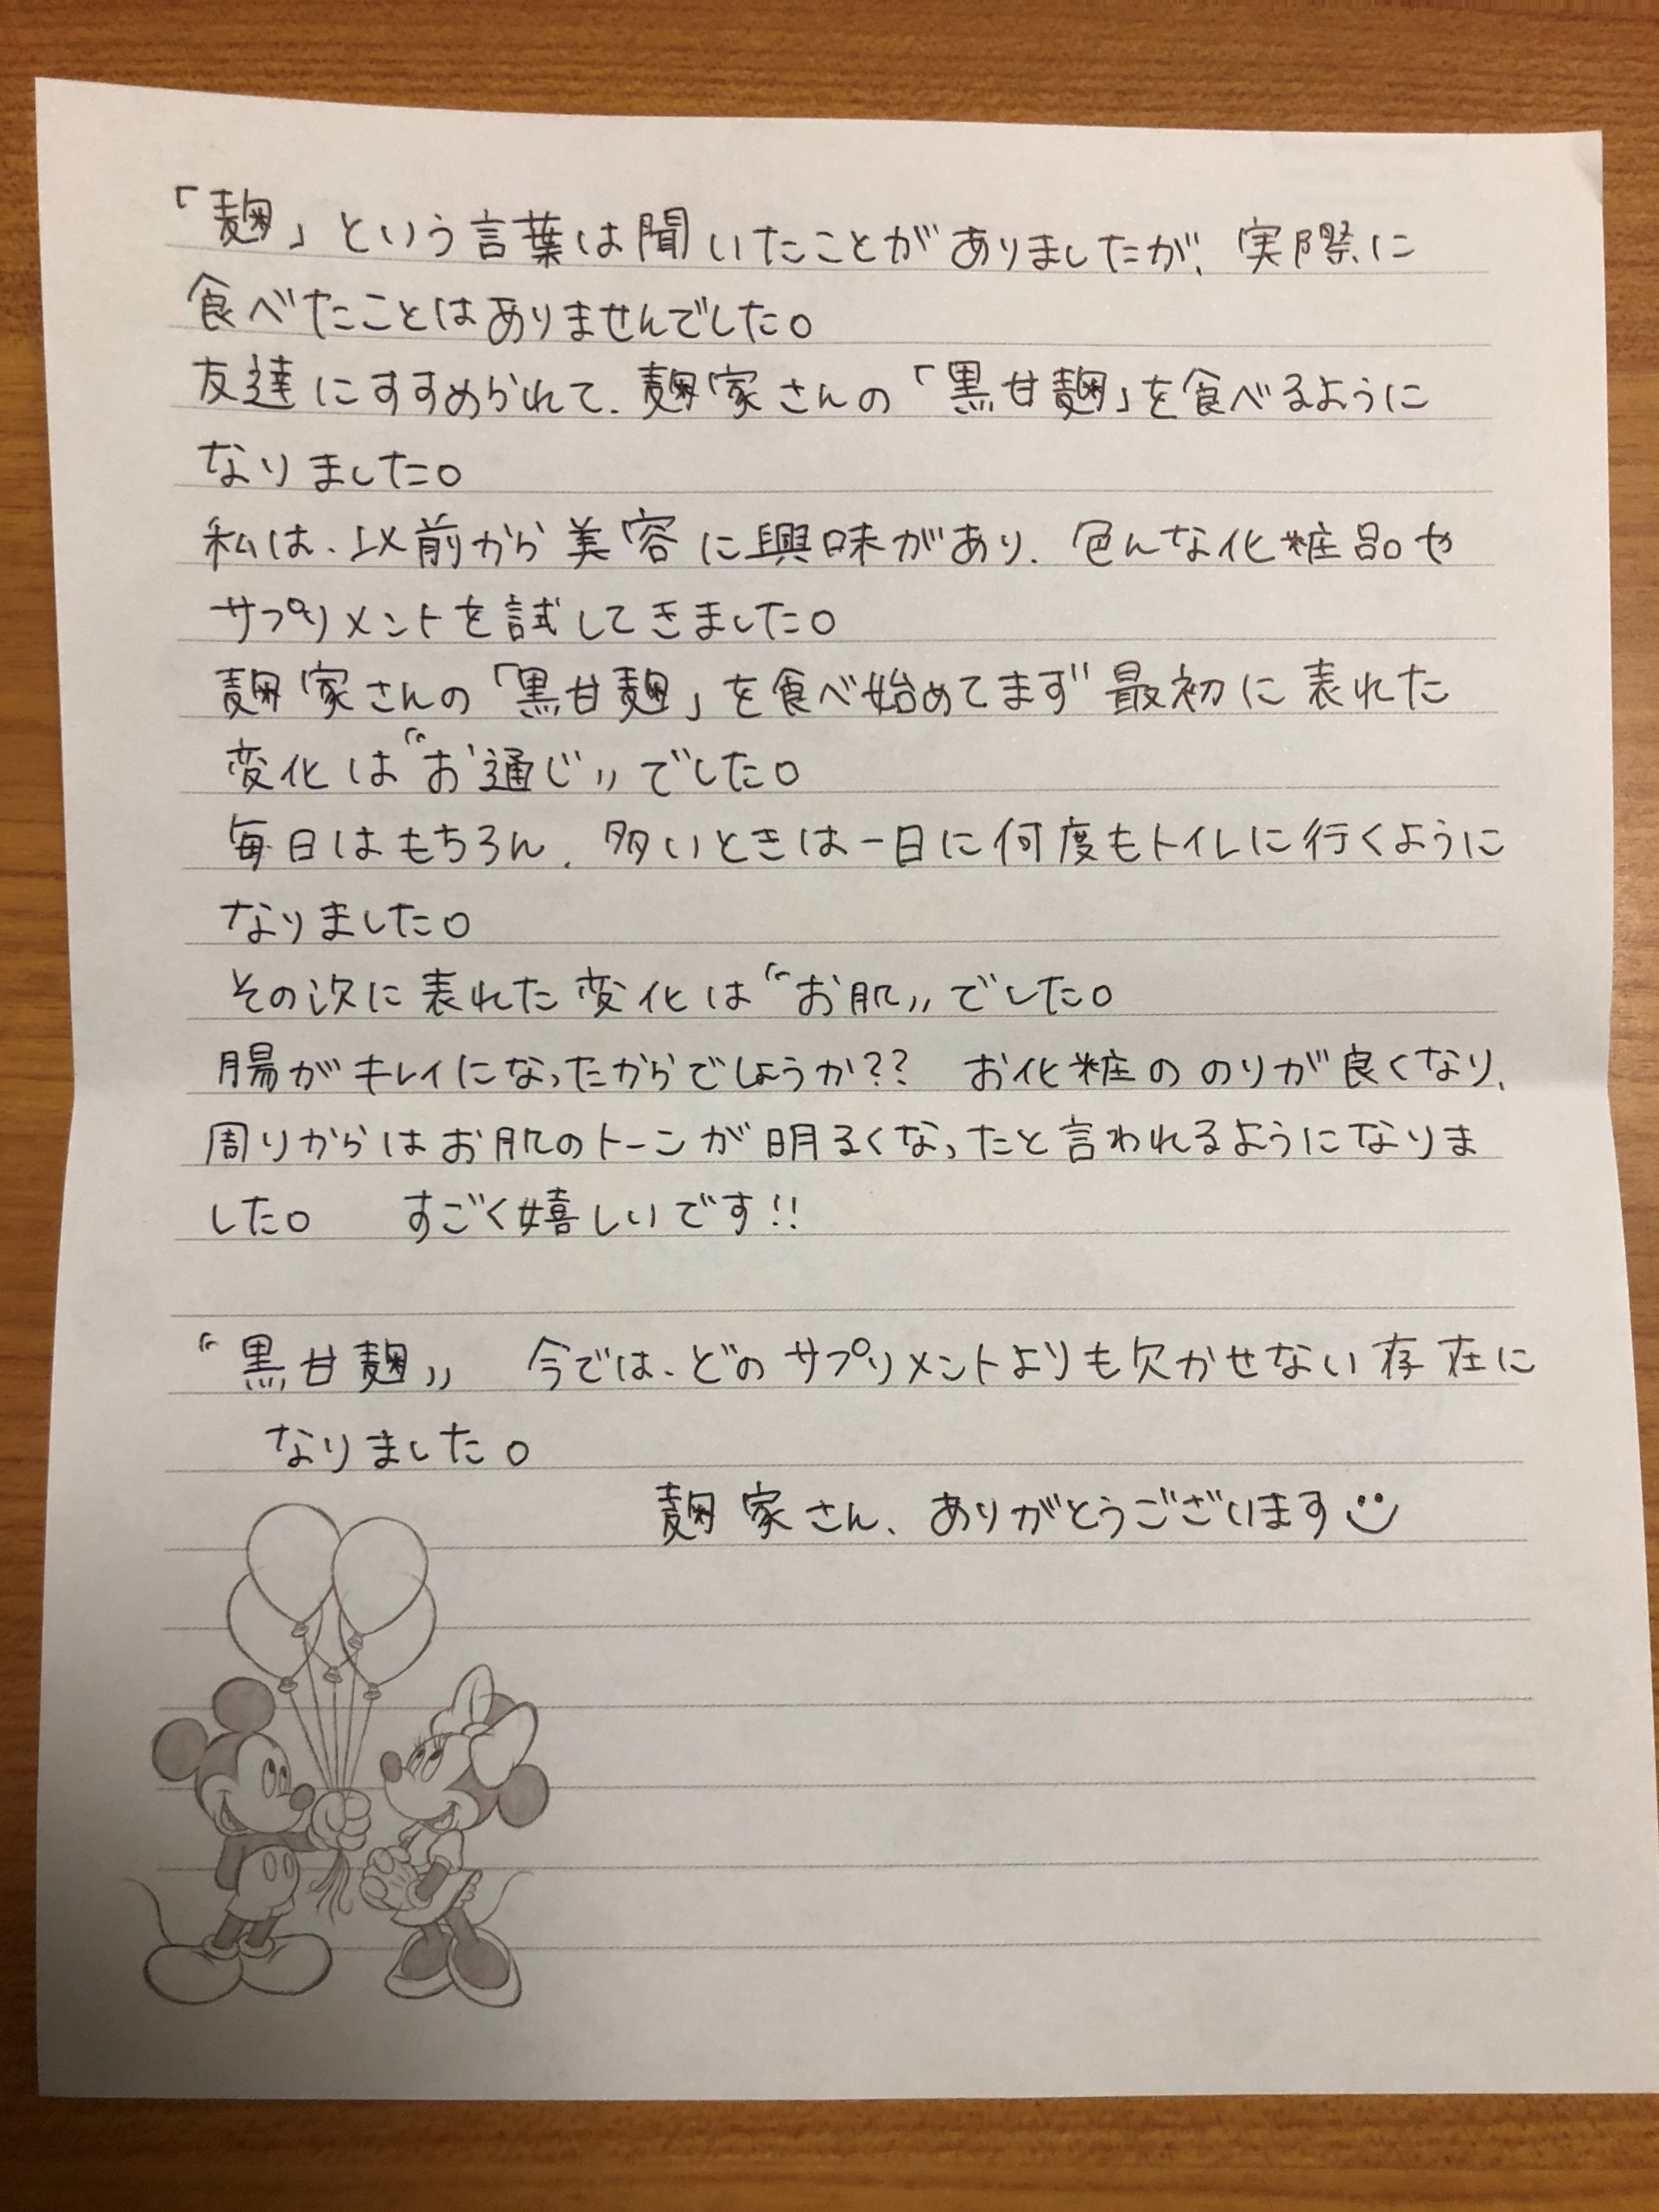 「麹」という言葉は聞いたことがありましたが、実際に
食べたことはありませんでした。
友達にすすめられて、麹家さんの「黒甘麹」を食べるように
なりました。
私は、以前から美容に興味があり、色んな化粧品や
サプリメントを試してきました。
麹家さんの「黒甘麹」を食べ始めてまず最初に表れた
変化は〝お通じ〟でした。
毎日はもちろん、多いときは一日に何度もトイレに行くように
なりました。
その次に表れた変化は〝お肌〟でした。
腸がキレイになったからでしょうか?? お化粧ののりが良くなり、
周りからはお肌のトーンが明るくなったと言われるようになりま
した。 すごく嬉しいです!!
〝黒甘麹〟 今では、どのサプリメントよりも欠かせない存在に
なりました。
麹家さん、ありがとうございます